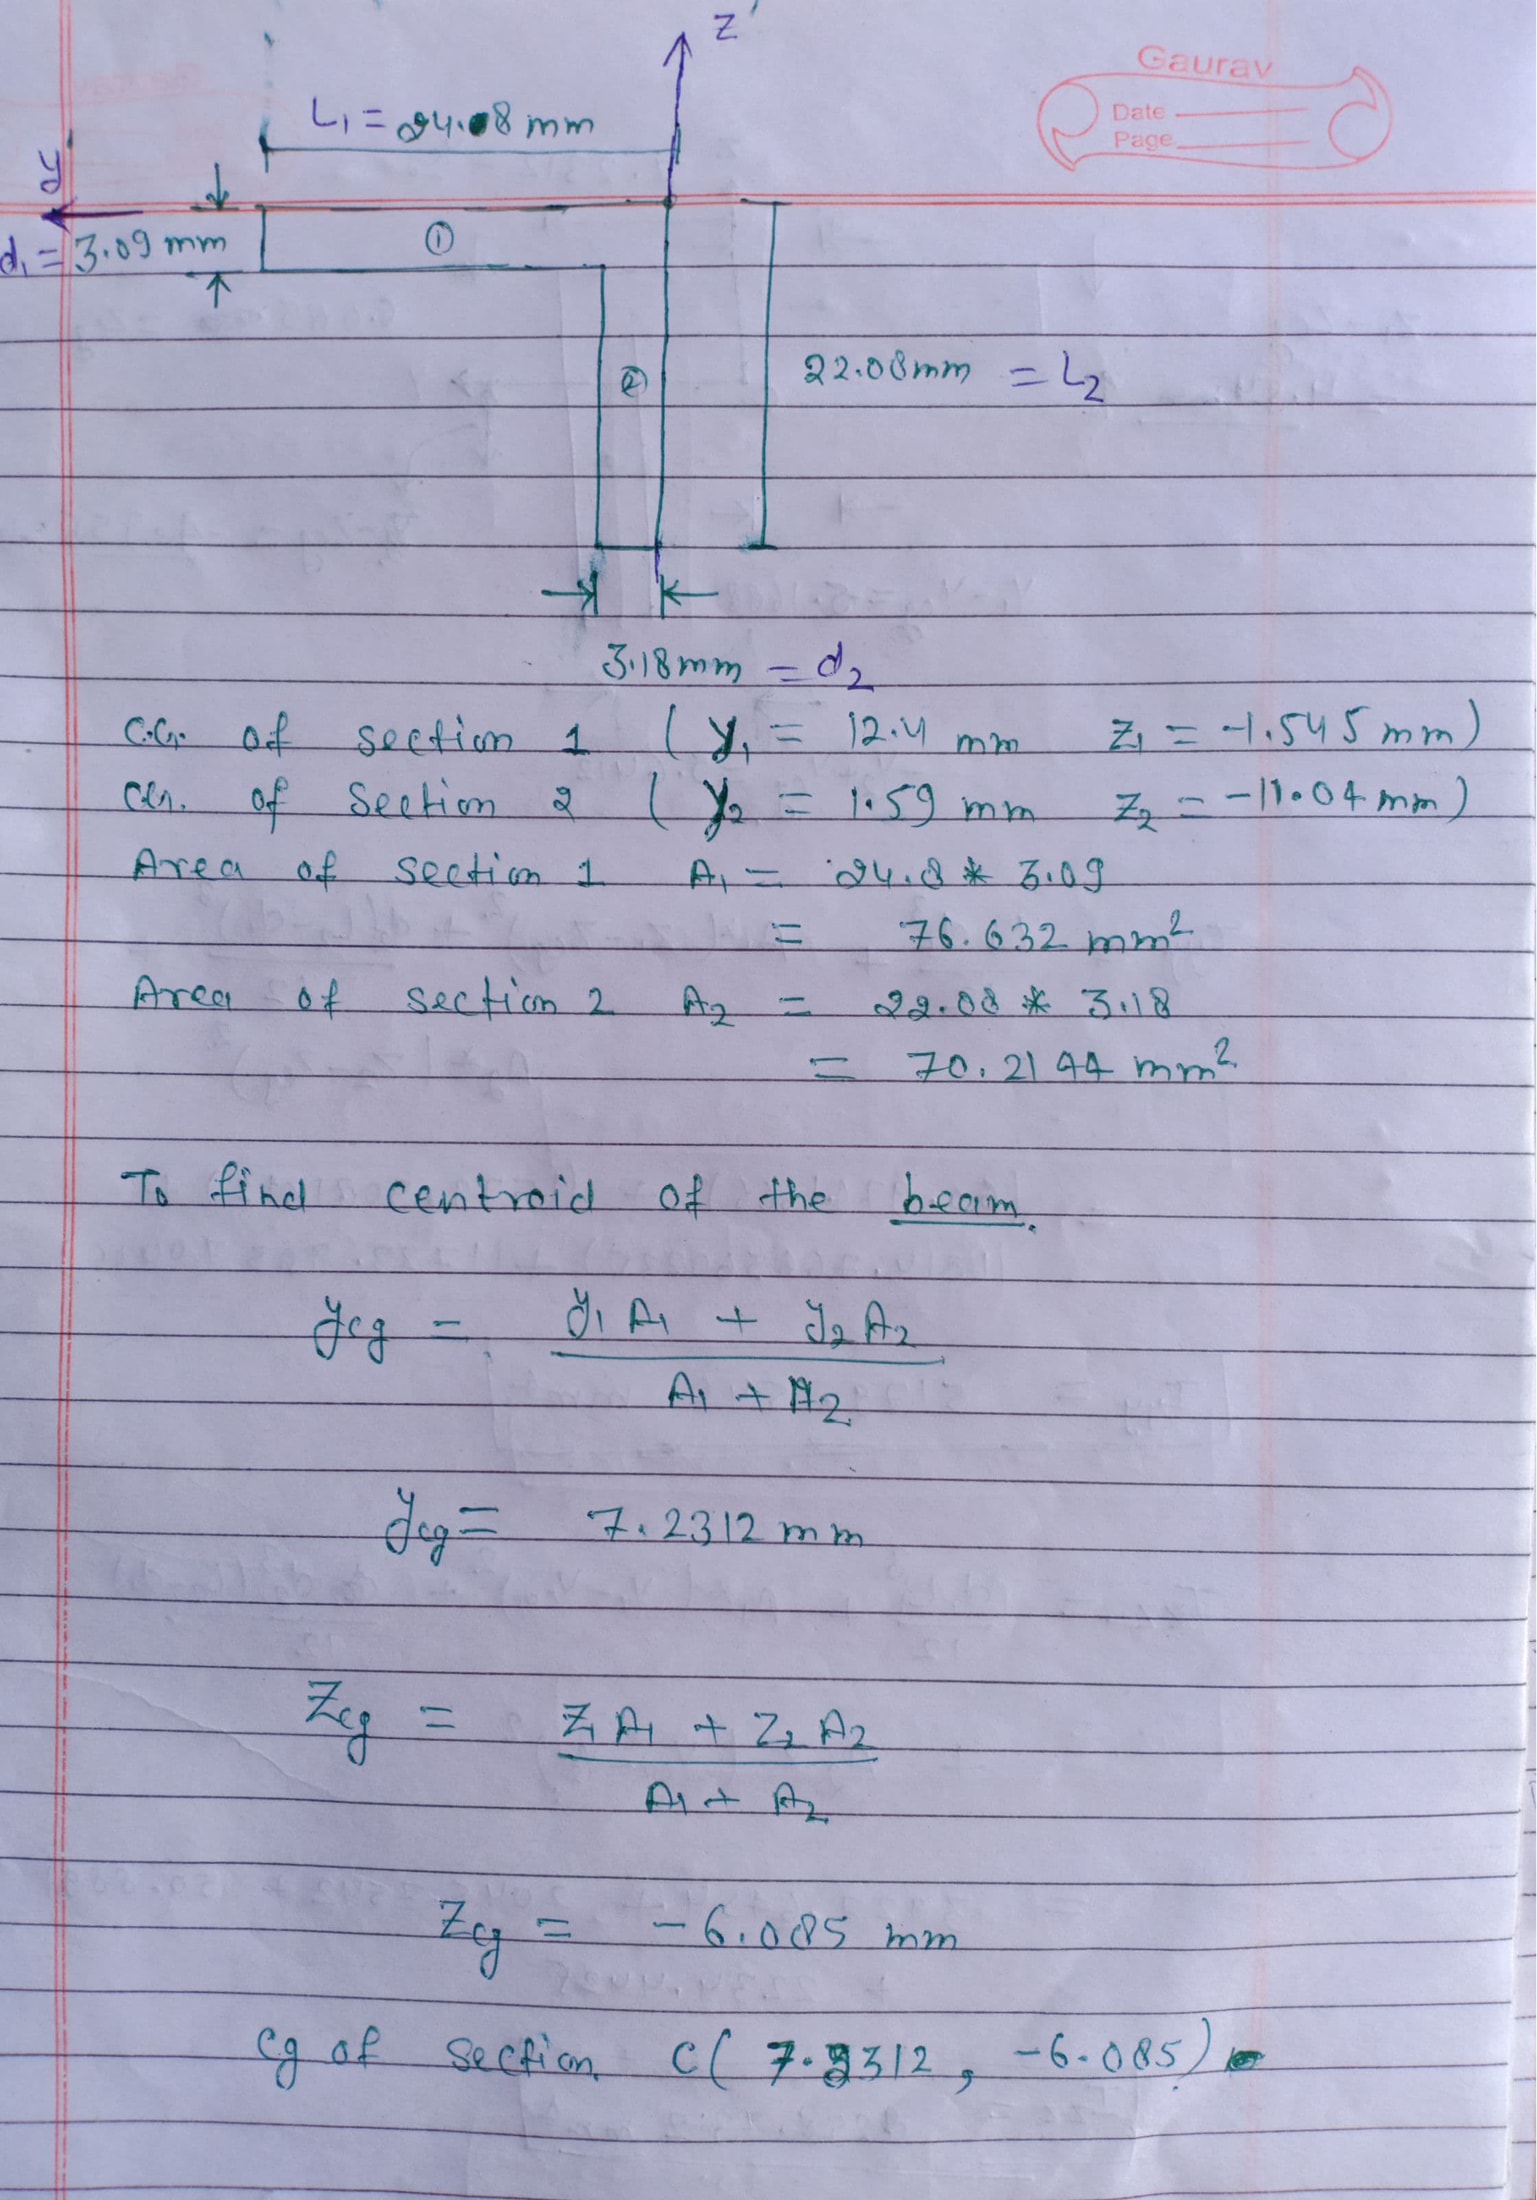 Z
Gaurav
Date
Page
L₁ = 24.08 mm
y
d₁ = 3.09 mm
①
②
22.08mm = L₂
3.18mm = d₂
C.G. of section 1 ( y₁ = 12.4 mm Z₁ = -1.545 mm)
CG. of section 2 ( y₂ = 1.59 mm Z₂ = -11.04 mm)
Area of section 1 A₁ = 24.8 * 3.09
= 76.632 mm²
Area of section 2 A₂ = 22.08 * 3.18
= 70.2144 mm²
To find centroid of the beam.
ycg = y₁ A₁ + y₂ A₂
A₁ + A₂
ycg = 7.2312 mm
Zcg = Z₁ A₁ + Z₂ A₂
A₁ + A₂
Zcg = -6.085 mm
Cg of section C( 7.2312, -6.085)